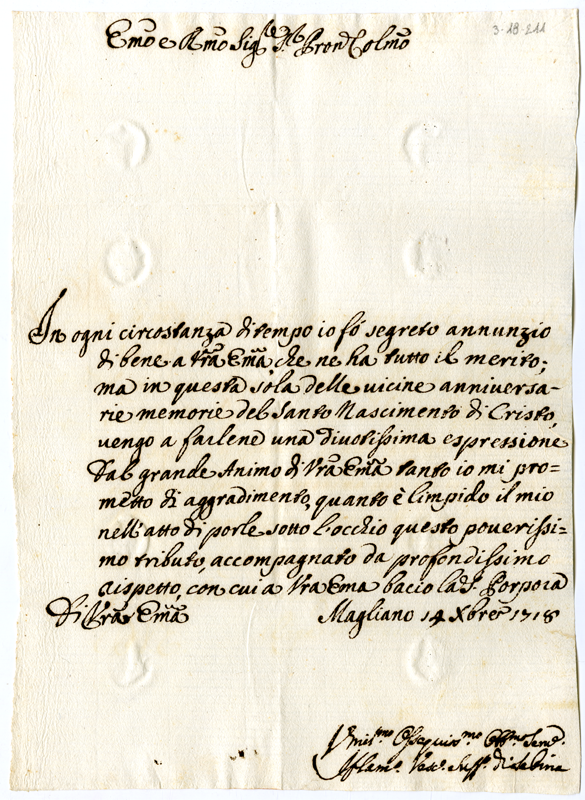 3-18-211
Emo e Rmo Sigre Pron Colmo
In ogni circostanza di tempo io fò segreto annunzio
di bene a Vrã Emã, che ne ha tutto il merito;
ma in questa sola delle vicine anniversa-
rie memorie del Santo Nascimento di Cristo,
vengo a farlene una divotissima espressione
Dal grande Animo di Vrã Emã tanto io mi pro-
metto di aggradimento, quanto è limpido il mio
nell'atto di porle sotto l'occhio questo poverissi=
mo tributo, accompagnato da profondissimo
rispetto, con cui a Vra Ema bacio la Sa. Porpora
Di Vrã Emã Magliano 14 Xbre 1718
Umilmo Ossequismo Obmo Serve.
Vesco Suffo di Sabina